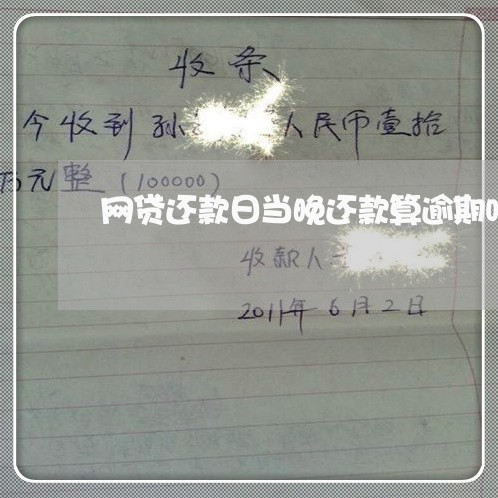 收条
今收到孙 人民币壹拾
万元整(100000)
网贷还款日当晚还款算逾期
收款人
2011年6月2日